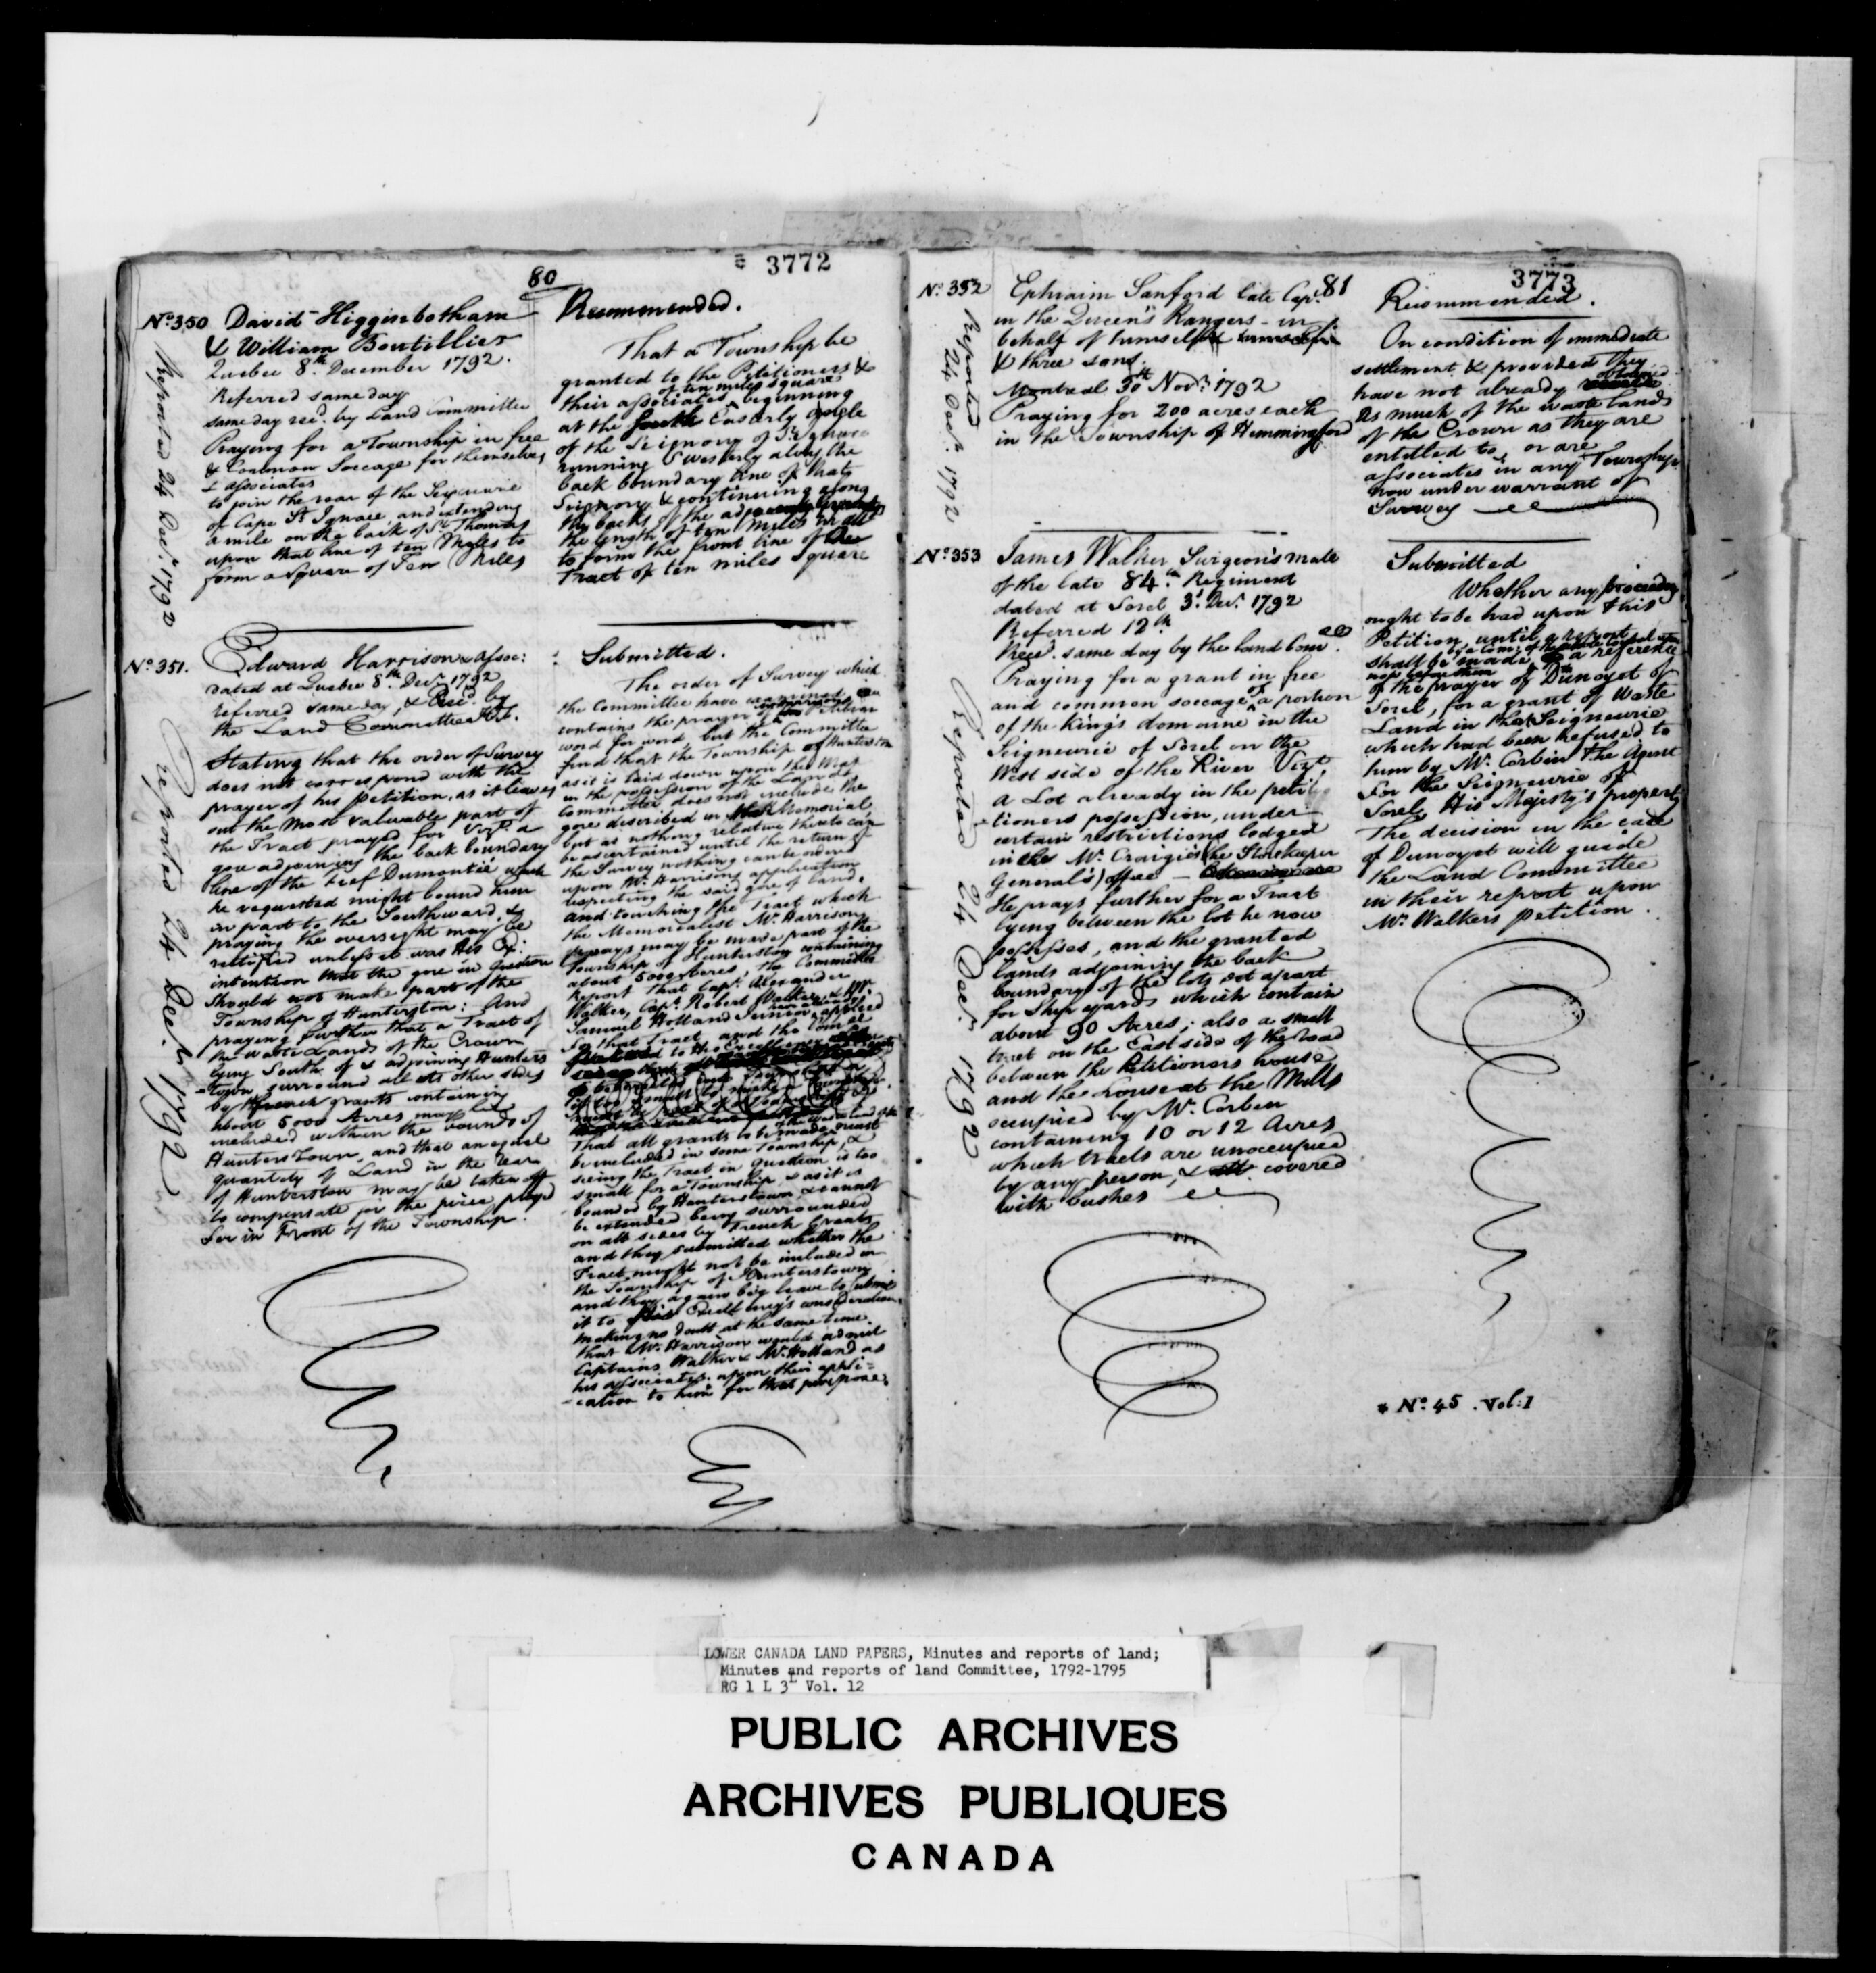 80
3772
No. 350 David Higginbotham
& William Boutillier
Quebec 8th December 1792.
Referred same day
same day recd. by Land Committee
Praying for a Township in free
& Common Soccage for themselves
& associates
to join the rear of the Seigneurie
of Cape St Ignace, and extending
a mile on the back of St Thomas
upon that line of ten Miles to
form a Square of Ten Miles
Reported 24 Decr. 1792
Recommended.
That a Township be
granted to the Petitioners &
of ten miles square
their associates beginning
at the South Easterly Angle
of the Seignory of St Ignace
running Swesterly along the
back boundary line of that
Seignory & continuing along
the backs of the adjacent
the length of ten miles in all
to form the front line of the
Tract of ten miles Square
No. 351. Edward Harrison & Assoc:
dated at Quebec 8th Decr 1792
referred same day, & Recd. by
the Land Committee
Stating that the order of Survey
does not correspond with the
prayer of his Petition, as it leaves
out the most valuable part of
the Tract prayed for Vizt. a
gore adjoining the back boundary
line of the Fief Dumontié which
he requested might bound him
in part to the Southward, &
praying the oversight may be
rectified unless it was His Ex:
intention that the gore in question
should not make part of the
Township of Hunterston: And
praying further that a Tract of
the waste Lands of the Crown
lying South of & adjoining Hunters
=town surround all its other sides
by French grants containing
about 5000 Acres may be
included within the bounds of
Hunters Town, and that an equal
quantity of Land in the rear
of Hunterston may be taken off
to compensate for the piece prayed
for in Front of the Township.
Reported 24 Decr. 1792
Submitted.
The order of Survey which
the Committee have examined
contains the prayer of the Petition
word for word, but the Committee
find that the Township of Hunterston
as it is laid down upon the Map
in the possession of the Land
Committee does not include the
gore discribed in that Memorial
but as nothing relative thereto can
be ascertained until the return of
the Survey nothing can be ordered
upon Mr. Harrisons application
respecting the said gore of land.
And touching the Tract which
the Memorialist Mr. Harrison
prays may be made part of the
Township of Hunterston containing
about 5000 Acres, the Committee
Report that Capt. Alexander
Walker, Capt. Robert Walker & Mr
Samuel Holland Junior applied
for that Tract, and the Com
to His Excellency
That all grants to be made must
be included in some Township, &
seeing the Tract in question is too
small for a Township, & as it is
bounded by Hunterstown & cannot
be extended being surrounded
on all sides by French Grants
and they submitted whether the
Tract might not be included in
the Township of Hunterstown
and they again beg leave to submit
it to His Excellency's consideration
making no doubt at the same time
that Mr. Harrison would admit
Captains Walker & Mr. Holland as
his associates upon their appli=
=cation to him for that purpose.
81
3773
No. 352 Ephraim Sanford late Capt.
in the Queen's Rangers - in
behalf of himself
& three sons.
Montreal 30th Novr. 1792
Praying for 200 acres each
in the Township of Hemmingford
Reported
24 Decr. 1792
Recommended.
On condition of immediate
settlement, & provided they
have not already obtained
As much of the waste lands
of the Crown as they are
entitled to, or are
associates in any Township
now under warrant of
Survey
No. 353 James Walker Surgeon's mate
of the late 84th Regiment
dated at Sorel 3d. Decr. 1792
Referred 12th
Recd. same day by the Land Com
Praying for a grant in free
and common soccage of a portion
of the King's domaine in the
Seigneurie of Sorel on the
West side of the River Vizt.
a Lot already in the peti
tioners possession, under
certain restrictions lodged
in Mr. Craigie's (the Storekeeper
General's) office
He prays further for a Tract
lying between the lot he now
possesses, and the granted
lands adjoining the back
boundary of the lots set apart
for Ship yards which contain
about 90 Acres; also a small
tract on the East side of the road
between the Petitioners house
and the House at the Mills
occupied by Mr. Corbin
containing 10 or 12 Acres
which tracts are unoccupied
by any person, & covered
with bushes
Reported 24 Decr. 1792
Submitted
Whether any proceeding
ought to be had upon this
Petition, until a report
shall be made, a reference
now before them
of the prayer of Dunoyet of
Sorel, for a grant of Waste
Land in that Seigneurie
which had been refused to
him by Mr. Corbin the Agent
For the Seigneurie of
Sorel, His Majesty's property
The decision in the case
of Dunoyet will guide
the Land Committee
in their report upon
Mr. Walkers petition.
* No. 45. Vol: 1
LOWER CANADA LAND PAPERS, Minutes and reports of land;
Minutes and reports of land Committee, 1792-1795
RG 1 L 3L Vol. 12
PUBLIC ARCHIVES
ARCHIVES PUBLIQUES
CANADA